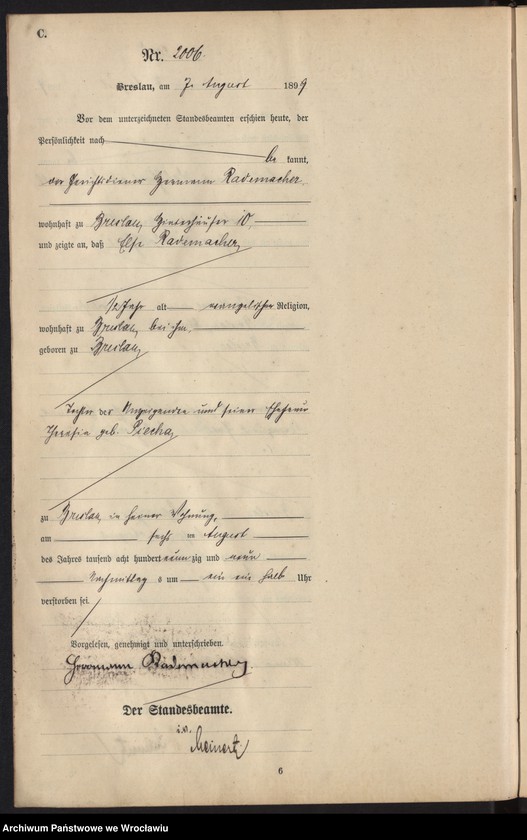 C.
Nr. 2006.
Breslau, am 7. August 1899
Vor dem unterzeichneten Standesbeamten erschien heute, der
Persönlichkeit nach
be kannt,
der Gerichtsdiener Hermann Rademacher,
wohnhaft zu Breslau, Hinterhäuser 10,
und zeigte an, daß Else Rademacher,
1/2 Jahr alt evangelischer Religion,
wohnhaft zu Breslau, bei ihm,
geboren zu Breslau,
Tochter des Anzeigenden und seiner Ehefrau
Theresia geb. Piecha,
zu Breslau, in seiner Wohnung,
am sechs ten August
des Jahres tausend acht hundert neunzig und neun
Nachmittag s um ein ein halb Uhr
verstorben sei.
Vorgelesen, genehmigt und unterschrieben.
Herrmann Rademacher
Der Standesbeamte.
i.V.
Meinert
6
Archiwum Państwowe we Wrocławiu